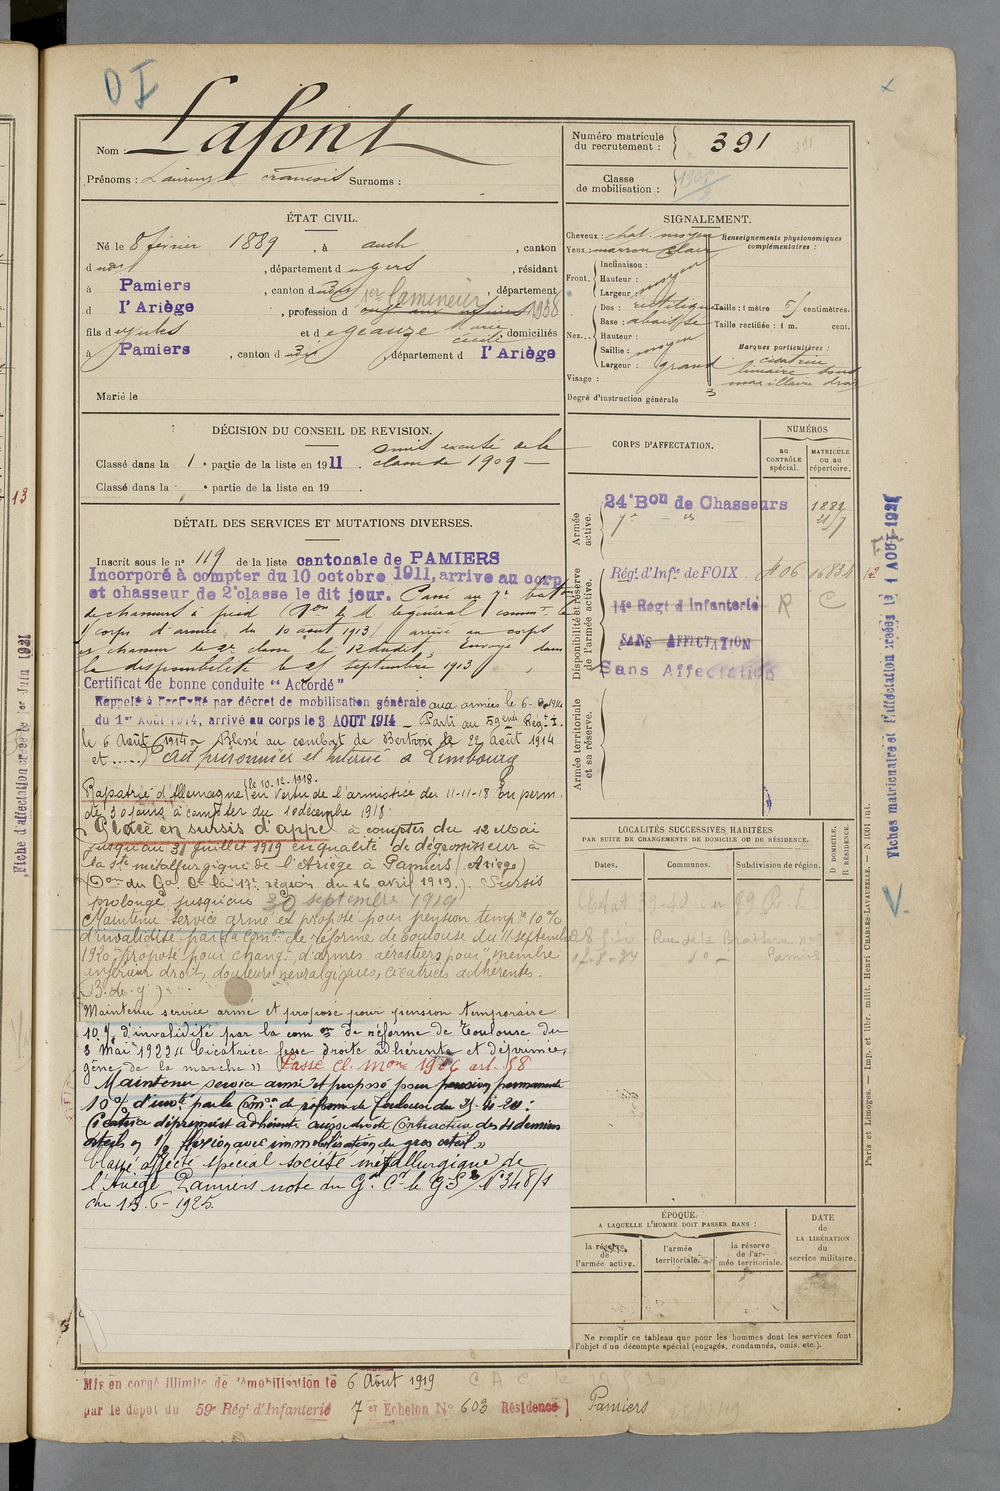 DI
Nom : Lafont
Prénoms : Laurent François Surnoms :
Numéro matricule du recrutement : 391
Classe de mobilisation :
ÉTAT CIVIL.
Né le 8 février 1889, à auch, canton
d udit, département d u gers, résidant
à Pamiers, canton dudit, département
d l'Ariège, profession d
1938
fils d et d domiciliés
à Pamiers, canton d udit, département d l'Ariège
Marié le
SIGNALEMENT.
Cheveux : chat. moyen
Yeux : marron clair
Renseignements physionomiques complémentaires :
Front. Inclinaison :
Hauteur :
Largeur : moyen
Nez... Dos : rectiligne
Base : abaissée
Hauteur :
Saillie : moyen
Largeur : grand
Visage :
Taille : 1 mètre centimètres.
Taille rectifiée : 1 m. cent.
Marques particulières :
cicatrice
linéaire sous
maxillaire droit
Degré d'instruction générale 3
DÉCISION DU CONSEIL DE REVISION.
Classé dans la 1e partie de la liste en 1911.
classe de 1909
Classé dans la e partie de la liste en 19
DÉTAIL DES SERVICES ET MUTATIONS DIVERSES.
Inscrit sous le no 119 de la liste cantonale de PAMIERS
Incorporé à compter du 10 octobre 1911, arrive au corp
et chasseur de 2e classe le dit jour. Passé au 7e baton
de chasseurs à pied (Don de M. le général commt le
corps d'armée du 10 aout 1913) arrivé au corps
et chasseur de 2e classe le 12 dudit, Envoyé dans
la disponibilité le 25 septembre 1913
Certificat de bonne conduite "Accordé"
Rappelé à l'activité par décret de mobilisation générale aux armées le 6-
du 1er Août 1914, arrivé au corps le 3 AOUT 1914 – Parti au 59eme Régt I.
le 6 Août 1914 – Blessé au combat de Bertrix le 22 Août 1914
et ..... Fait prisonnier et interné à Limbourg
Rapatrié d'Allemagne (le 10-12-1918. en vertu de l'armistice du 11-11-18 En perm.
de 30 jours à compter du 10 décembre 1918
Placé en sursis d'appel à compter du 12 Mai
jusqu'au 31 juillet 1919 en qualité de dégrossisseur à
la Sté métallurgique de l'Ariège à Pamiers (Ariège)
(Don du Gal Ct la 17e région du 16 avril 1919.) Sursis
prolongé jusqu'au 30 septembre 1919
Maintenu service armé et proposé pour pension tempre 10%
d'invalidité par la Comon de réforme de Toulouse du 11 septembre
1920 "proposé pour changt d'armes aérostiers pour" membre
inférieur droit, douleurs névralgiques, cicatrices adhérente.
Maintenu service armé et proposé pour pension temporaire
10% d'invalidité par la comon de réforme de Toulouse du
3 Mai 1922 "Cicatrice fesse droite adhérente et déprimée,
gêne de la marche" Passé cl. mon 1906 art. 58
Maintenu service armé et proposé pour pension permanente
10% d'invté par la Comon de réforme de Toulouse du
Cicatrice déprimée et adhérente cuisse droite Contracture des 4 derniers
orteils en 1/2 flexion avec immobilisation du gros orteil.
Classé affecté spécial société métallurgique de
l'Ariège Pamiers note du Gal Ct le No 348/1
du 13-6-1925.
CORPS D'AFFECTATION.
NUMÉROS
AU CONTRÔLE spécial.
MATRICULE OU AU RÉPERTOIRE.
Armée active.
24e Bon de Chasseurs
7e
Disponibilité et réserve de l'armée active.
Régt d'Infie de FOIX 406 16834
14e Régt d'Infanterie R C
SANS AFFECTATION
Sans Affectation
Armée territoriale et sa réserve.
LOCALITÉS SUCCESSIVES HABITÉES
PAR SUITE DE CHANGEMENTS DE DOMICILE OU DE RÉSIDENCE.
D DOMICILE. R RÉSIDENCE.
Dates. Communes. Subdivision de région.
Rue de la
Pamiers
ÉPOQUE
A LAQUELLE L'HOMME DOIT PASSER DANS :
DATE DE LA LIBÉRATION du service militaire.
la réserve de l'armée active.
l'armée territoriale.
la réserve de l'armée territoriale.
Ne remplir ce tableau que pour les hommes dont les services font l'objet d'un décompte spécial (engagés, condamnés, omis, etc.).
Mis en congé illimité de démobilisation le 6 Août 1919
par le dépot du 59e Régt d'Infanterie 7er Echelon No 603 Résidence Pamiers
Fiche d'affectation créée le 1er Juin 1921
13
Fiches matriculaire et d'affectation créées le 1 AOUT 1921
Paris et Limoges. — Imp. et libr. milit. Henri CHARLES-LAVAUZELLE. — N 1001 int.